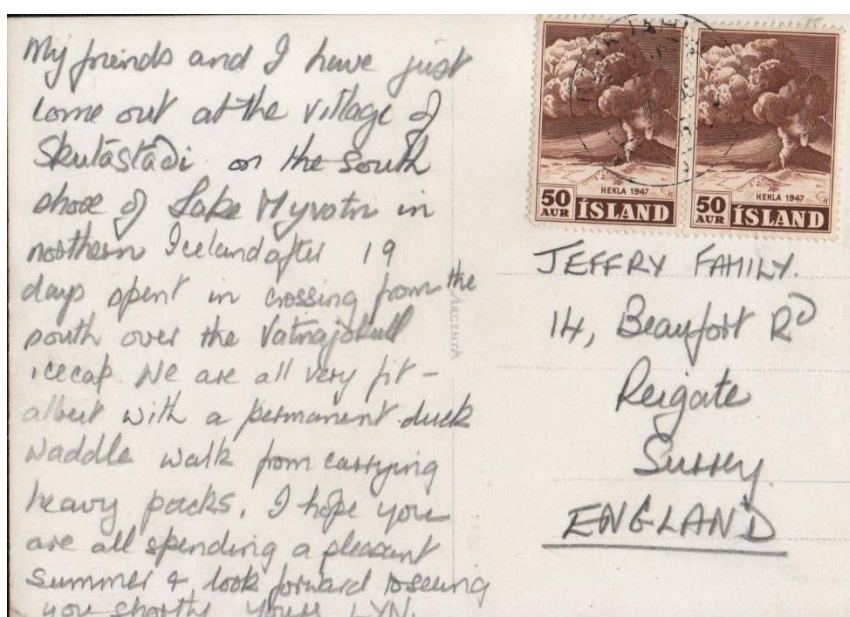 My friends and I have just
come out at the village of
Skutástadi on the south
shore of Lake Myvatn in
northern Iceland after 19
days spent in crossing from the
south over the Vatnajokull
icecap. We are all very fit -
albeit with a permanent duck
waddle walk from carrying
heavy packs. I hope you
are all spending a pleasant
summer & look forward to seeing
you shortly yours LYN.
ARGENTA
HEKLA 1947
50
AUR ÍSLAND
HEKLA 1947
50
AUR ÍSLAND
JEFFRY FAMILY.
14, Beaufort RD
Reigate
Surrey.
ENGLAND